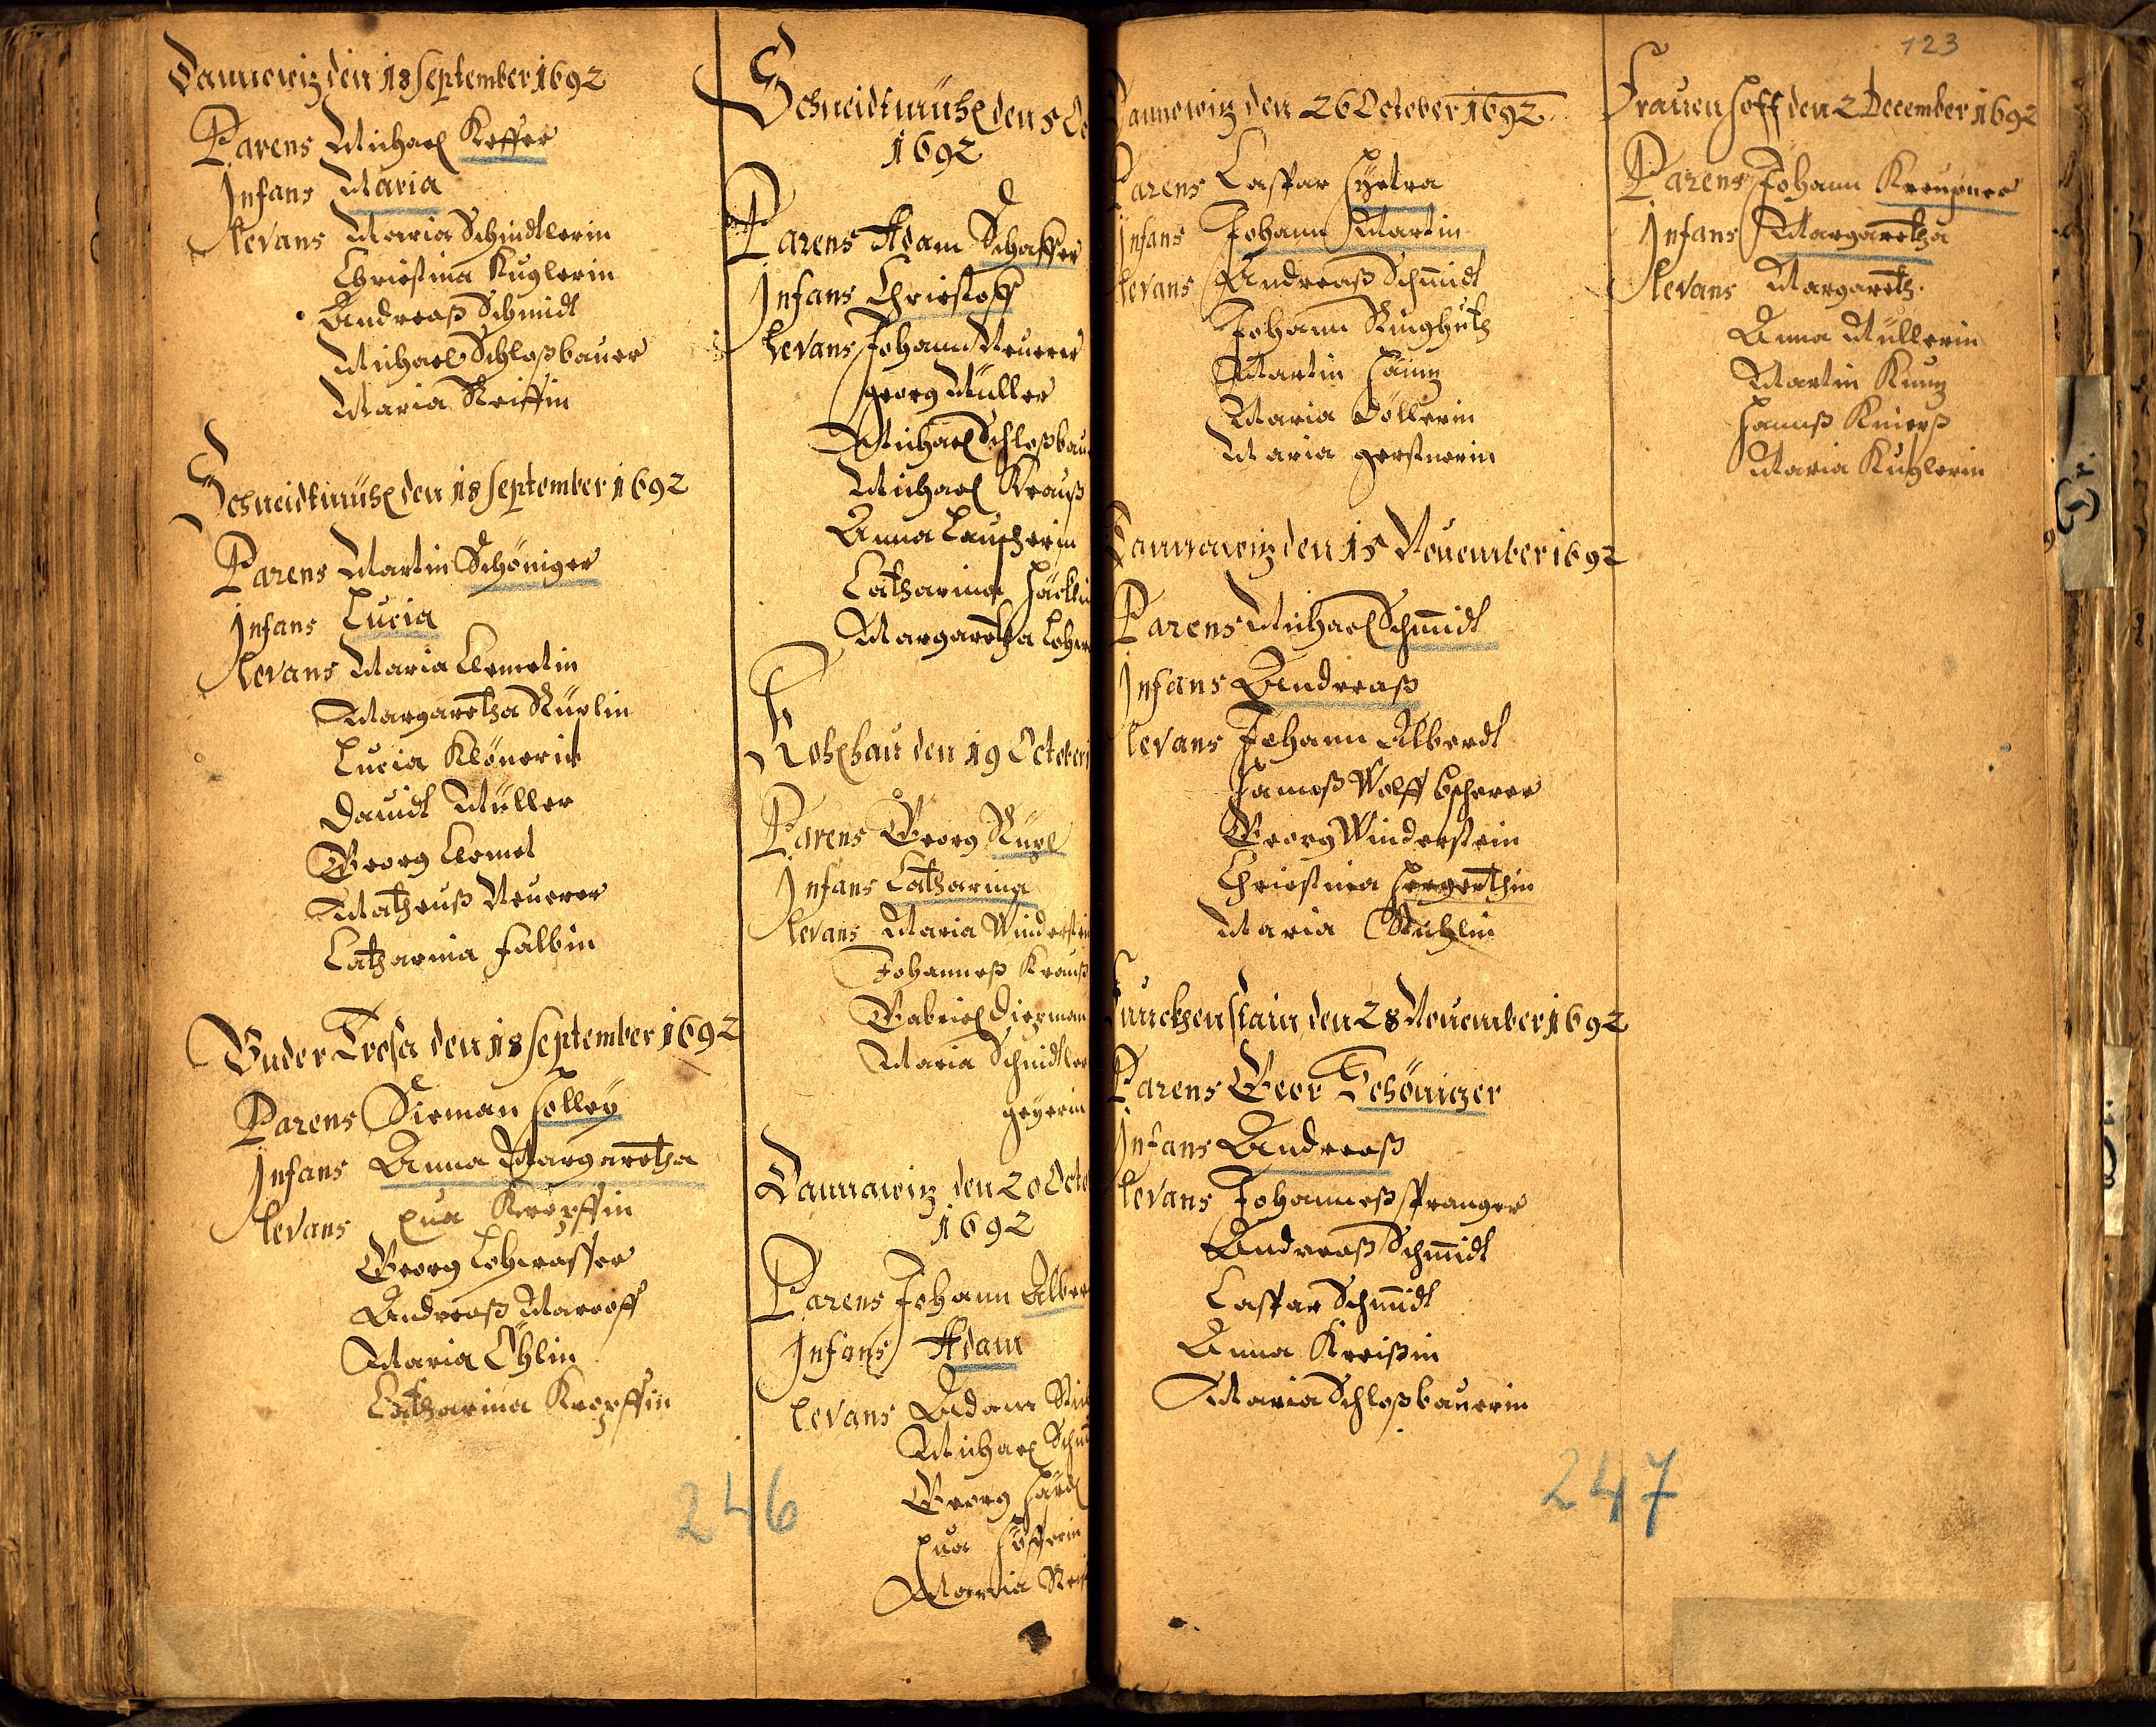 Dannawiz den 18 September 1692
Parens Michael Keffer
Infans Maria
levans Maria Schindtlerin
Christina Kuglerin
Andreaß Schmidt
Michael Schloßbauer
Maria Reiffin
Schneidtmühl den 18 September 1692
Parens Martin Schöniger
Infans Lucia
levans Maria Clemetin
Margaretha Ruplin
Lucia
Dauidt Müller
Georg Clemet
Matheuß Neuerer
Catharina Falbin
Vnder Trosa den 18 September 1692
Parens Sieman Holley
Infans Anna Margaretha
levans Eua
Georg Lohwasser
Andreaß
Maria Öhlin
Catharina
Schneidtmühl den 5 Oc
1692
Parens Adam Schaffer
Infans Christoff
levans Johann Neuerer
georg Müller
Michael Schloßbau
Michael Krauß
Anna
Catharina
Margaretha
den 19 October
Parens Georg Rupl
Infans Catharina
levans Maria Winderstein
Johanneß Krauß
Gabriel
Maria Schindtler
geyerin
Dannawiz den 20 Octo
1692
Parens Johann Alber
Infans Adam
levans Adam
Michael Schmi
Georg
Eua
Maria Reiff
123
Dannowiz den 26 October 1692
Parens Caspar
Infans Johann Martin
levans Andreaß Schmidt
Johann Ringhuth
Martin
Maria Döllerin
Maria gerstnerin
Dannawiz den 15 Nouember 1692
Parens Michael Schmidt
Infans Andreaß
levans Johann Alberdt
Hanneß Wolff
Georg Winderstein
Christina
Maria
den 28 Nouember 1692
Parens Geor Schönizer
Infans Andreaß
levans Johanneß Spranger
Andreaß Schmidt
Caspar Schmidt
Anna Kreißin
Maria Schloßbauerin
Frauen Hoff den 2 December 1692
Parens Johann
Infans Margaretha
levans Margareth.
Anna Müllerin
Martin Kunz
Hannß
Maria Kuglerin
246
247